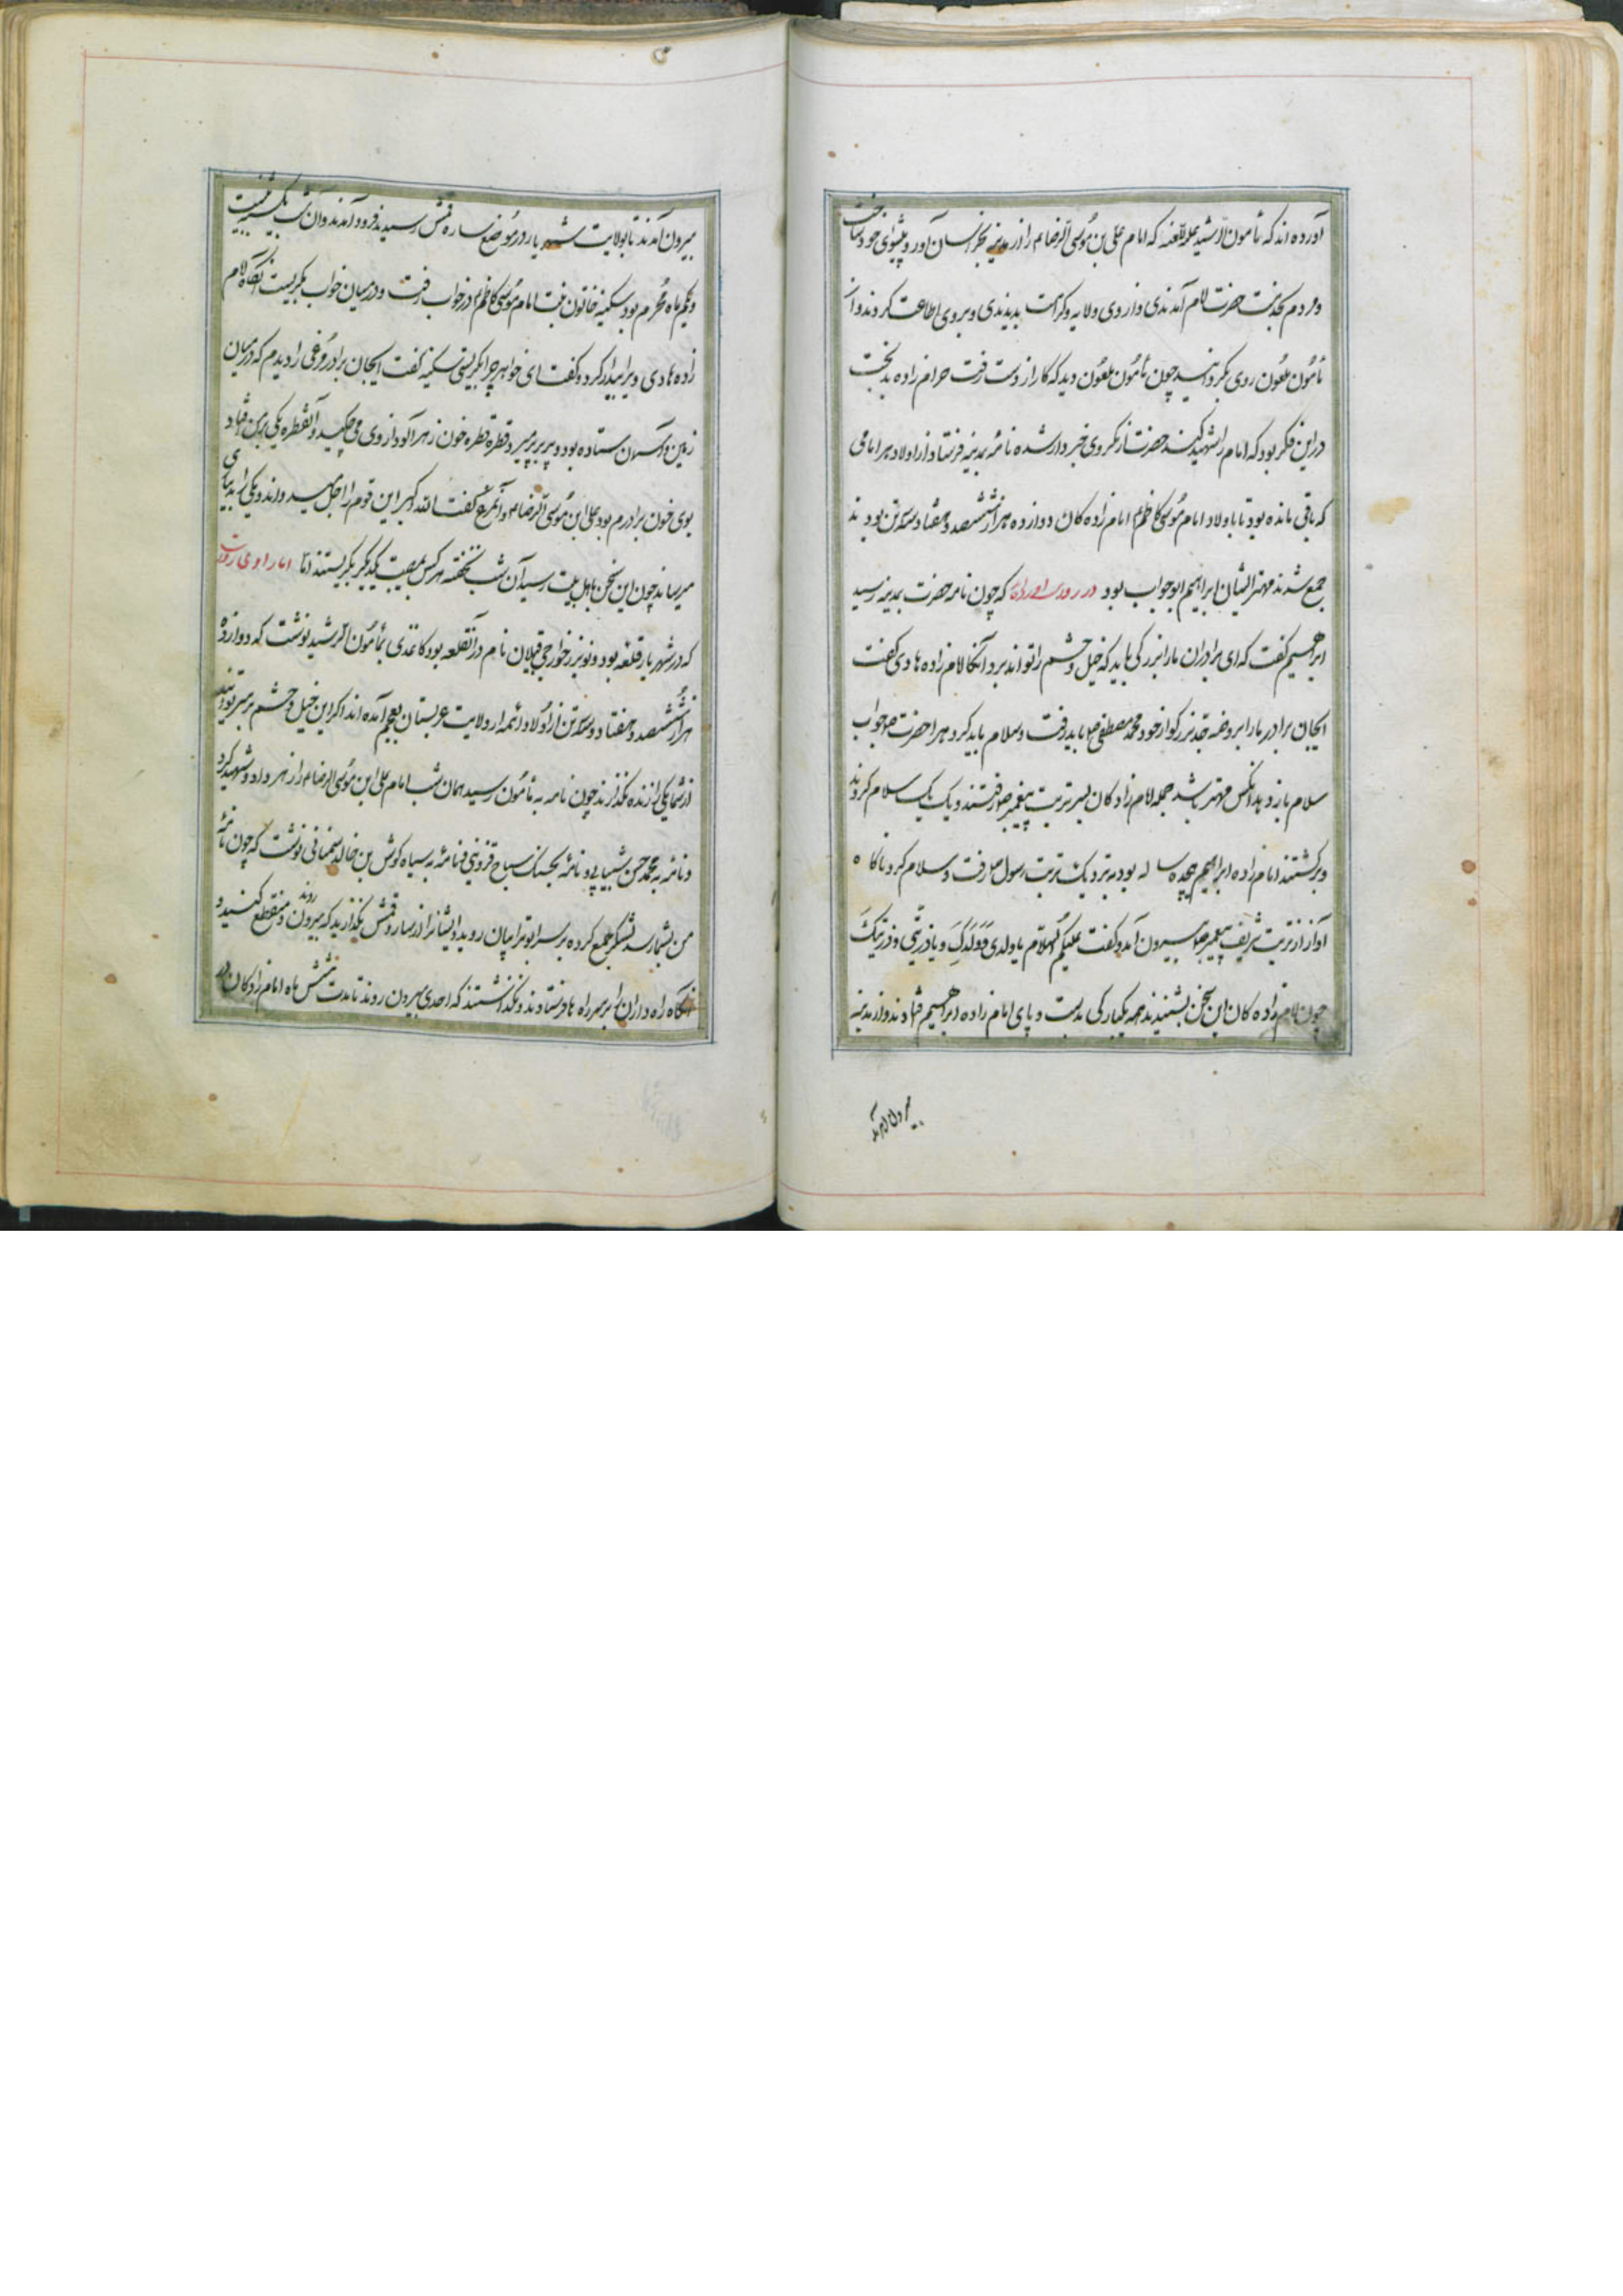 آورده اند که مأمون الرشید علیه اللعنه که امام علی بن موسی الرضا را از مدینه بخراسان آورد و پیشوای خود ساخت
و مردم بخدمت حضرت امام آمدندی و از وی ولایه و کرامت بدیدندی و بروی اطاعت کردند و از
مأمون ملعون روی بگردانیدند چون مأمون ملعون دید که کار از دست رفت حرام زاده بدبخت
در این فکر بود که امام را شهید کند حضرت از مکر وی خبردار شده نامه بمدینه فرستاد و از اولاد هر امامی
که باقی مانده بود تا با اولاد امام موسی کاظم امام زاده کان دوازده هزار ششصد و هفتاد و سه تن بودند
جمع شدند مهتر ایشان ابراهیم ابو جواب بود در روایت آورده اند که چون نامه حضرت بمدینه رسید
ابراهیم گفت که ای برادران ما را بزرگی باید که خیل و حشم را تواند برد آنگاه امام زاده هادی گفت
ایجان برادر ما را بروضه جد بزرگوار خود محمد مصطفی ص باید رفت و سلام باید کرد هر را حضرت ص جواب
سلام باز دهد آنکس مهتر باشد جمله امام زادگان بسر تربت پیغمبر ص رفتند و یک یک سلام کردند
و برگشتند امام زاده ابراهیم هجده ساله بود به نزدیک تربت رسول ص رفت و سلام کرد ناگاه
آواز از تربت شریف پیغمبر ص بیرون آمد و گفت علیکم السلام یا ولدی و ولدک و یا ذریتی و ذریتک
چون امام زاده کان این سخن بشنیدند همه یکبارگی بدست و پای امام زاده ابراهیم فتادند و از مدینه
بیرون آمدند
بیرون آمدند تا بولایت شهریار در موضع ساره قمش رسیدند فرود آمدند و آن شب یکشنبه بیست
و یکم ماه محرم بود سکینه خاتون بنت امام موسی کاظم در خواب رفت و در میان خواب بگریست آنگاه امام
زاده هادی ویرا بیدار کرده گفت ای خواهر چرا بگریستی سکینه گفت ایجان برادر مرغی را دیدم که در میان
زمین و آسمان ستاده بود و پر پر میزد و قطره قطره خون زهر آلود از وی می چکید و آنقطره یکی برمن فتاد
بوی خون برادرم بود علی ابن موسی الرضا و آنمرغ گفت الله اکبر این قوم را اجل مهمید واند و یکی را بدیدی
میرساند چون این سخن باهل بیت رسید آن شب نخفته هر کس بمصیبت یکدیگر بگریستند اما اما راوی روایت
که در شهریار قلعه بود و نوذر خوارجی قپلان نام در آنقلعه بود کاغذی بمأمون الرشید نوشت که دوازده
هزار ششصد و هفتاد و سه تن از اولاد ائمه از ولایت عربستان بعجم آمده اند اگر این خیل و حشم بر سر تو آیند
از شما یکی را زنده نگذارند چون نامه به مأمون رسید همان شب امام علی ابن موسی الرضا را زهر داد و شهید کرد
و نامه به محمد حسن شیبانی و نامه بجسنک سباح قزوینی و نامه به سیاه گوش بن خالد سمنانی نوشت که چون نامه
من بشما رسد لشکر جمع کرده بر سر ابوترابیان روید و ایشانرا از ساره قمش نگذارید که بیرون روند و منقطع کنید و
آنگاه راه داران را بر سر راه ها فرستادند و نگذاشتند که احدی بیرون روند تا مدت شش ماه امام زادگان در